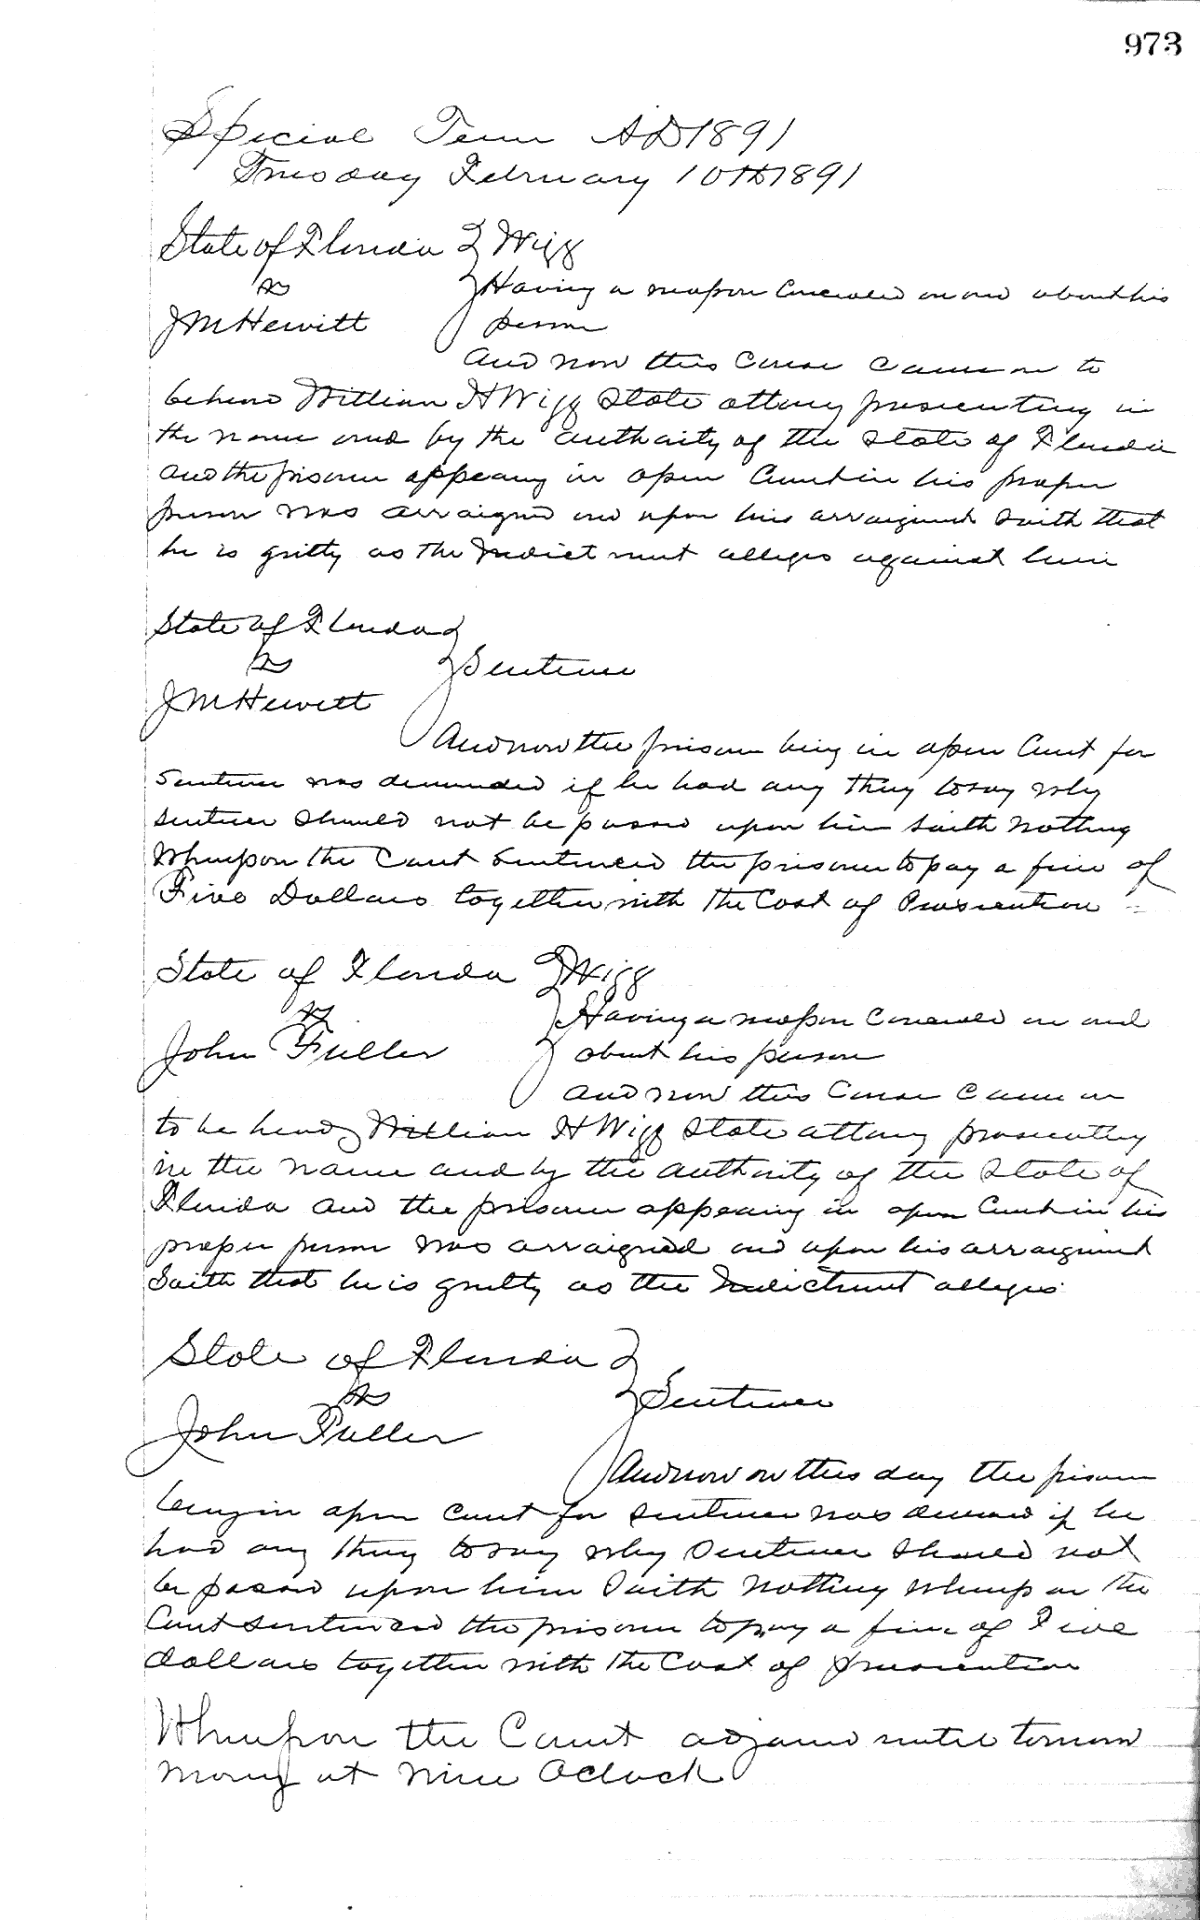 973
Special Term AD 1891
Tuesday February 10th 1891
State of Florida } Wigg
vs } Having a weapon Concealed on and about his
J M Hewitt } person
And now this Cause Came on to
be heard William H Wigg State attorney prosecuting in
the name and by the authority of the State of Florida
and the prisoner appearing in open Court in his proper
person was arraigned and upon his arraignment Saith that
he is guilty as the Indictment alleges against him
State of Florida }
vs } Sentence
J M Hewitt
And now the prisoner being in open Court for
Sentence was demanded if he had any thing to say why
Sentence Should not be passed upon him Saith Nothing
Whereupon the Court Sentenced the prisoner to pay a fine of
Five Dollars together with the Cost of Prosecution
State of Florida } Wigg
vs } Having a weapon Concealed on and
John Fuller } about his person
And now this Cause Came on
to be heard William H Wigg State attorney prosecuting
in the name and by the authority of the State of
Florida and the prisoner appearing in open Court in his
proper person was arraigned and upon his arraignment
Saith that he is guilty as the Indictment alleges
State of Florida }
vs } Sentence
John Fuller
And now on this day the prisoner
being in open Court for Sentence was demand if he
had any thing to say why Sentence Should not
be passed upon him Saith Nothing Whereupon the
Court Sentenced the prisoner to pay a fine of Five
dollars together with the Cost of prosecution
Whereupon the Court adjourned until tomorrow
Morning at Nine Oclock